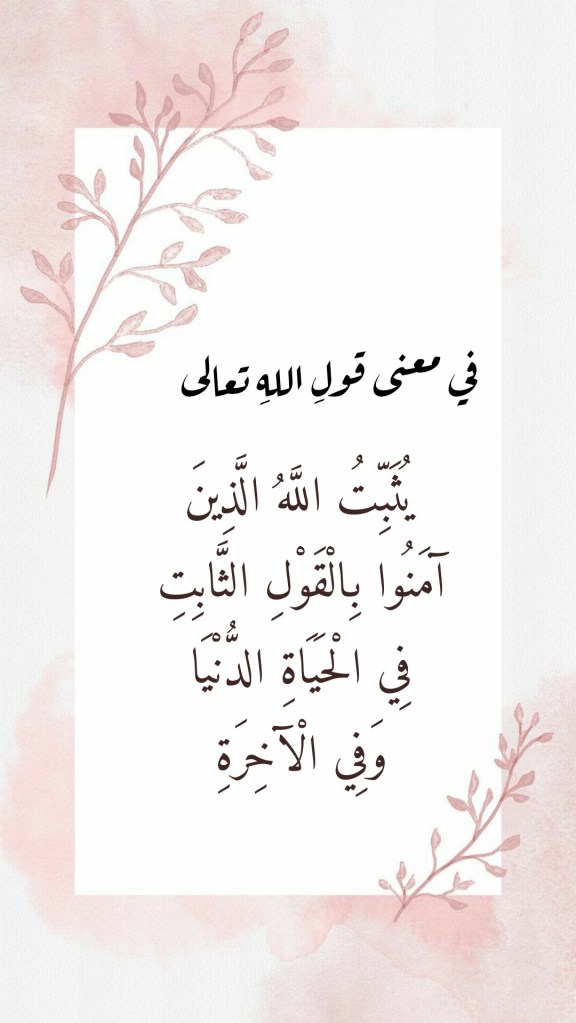 في معنى قولِ اللهِ تعالى
يُثَبِّتُ اللَّهُ الَّذِينَ
آمَنُوا بِالْقَوْلِ الثَّابِتِ
فِي الْحَيَاةِ الدُّنْيَا
وَفِي الْآخِرَةِ